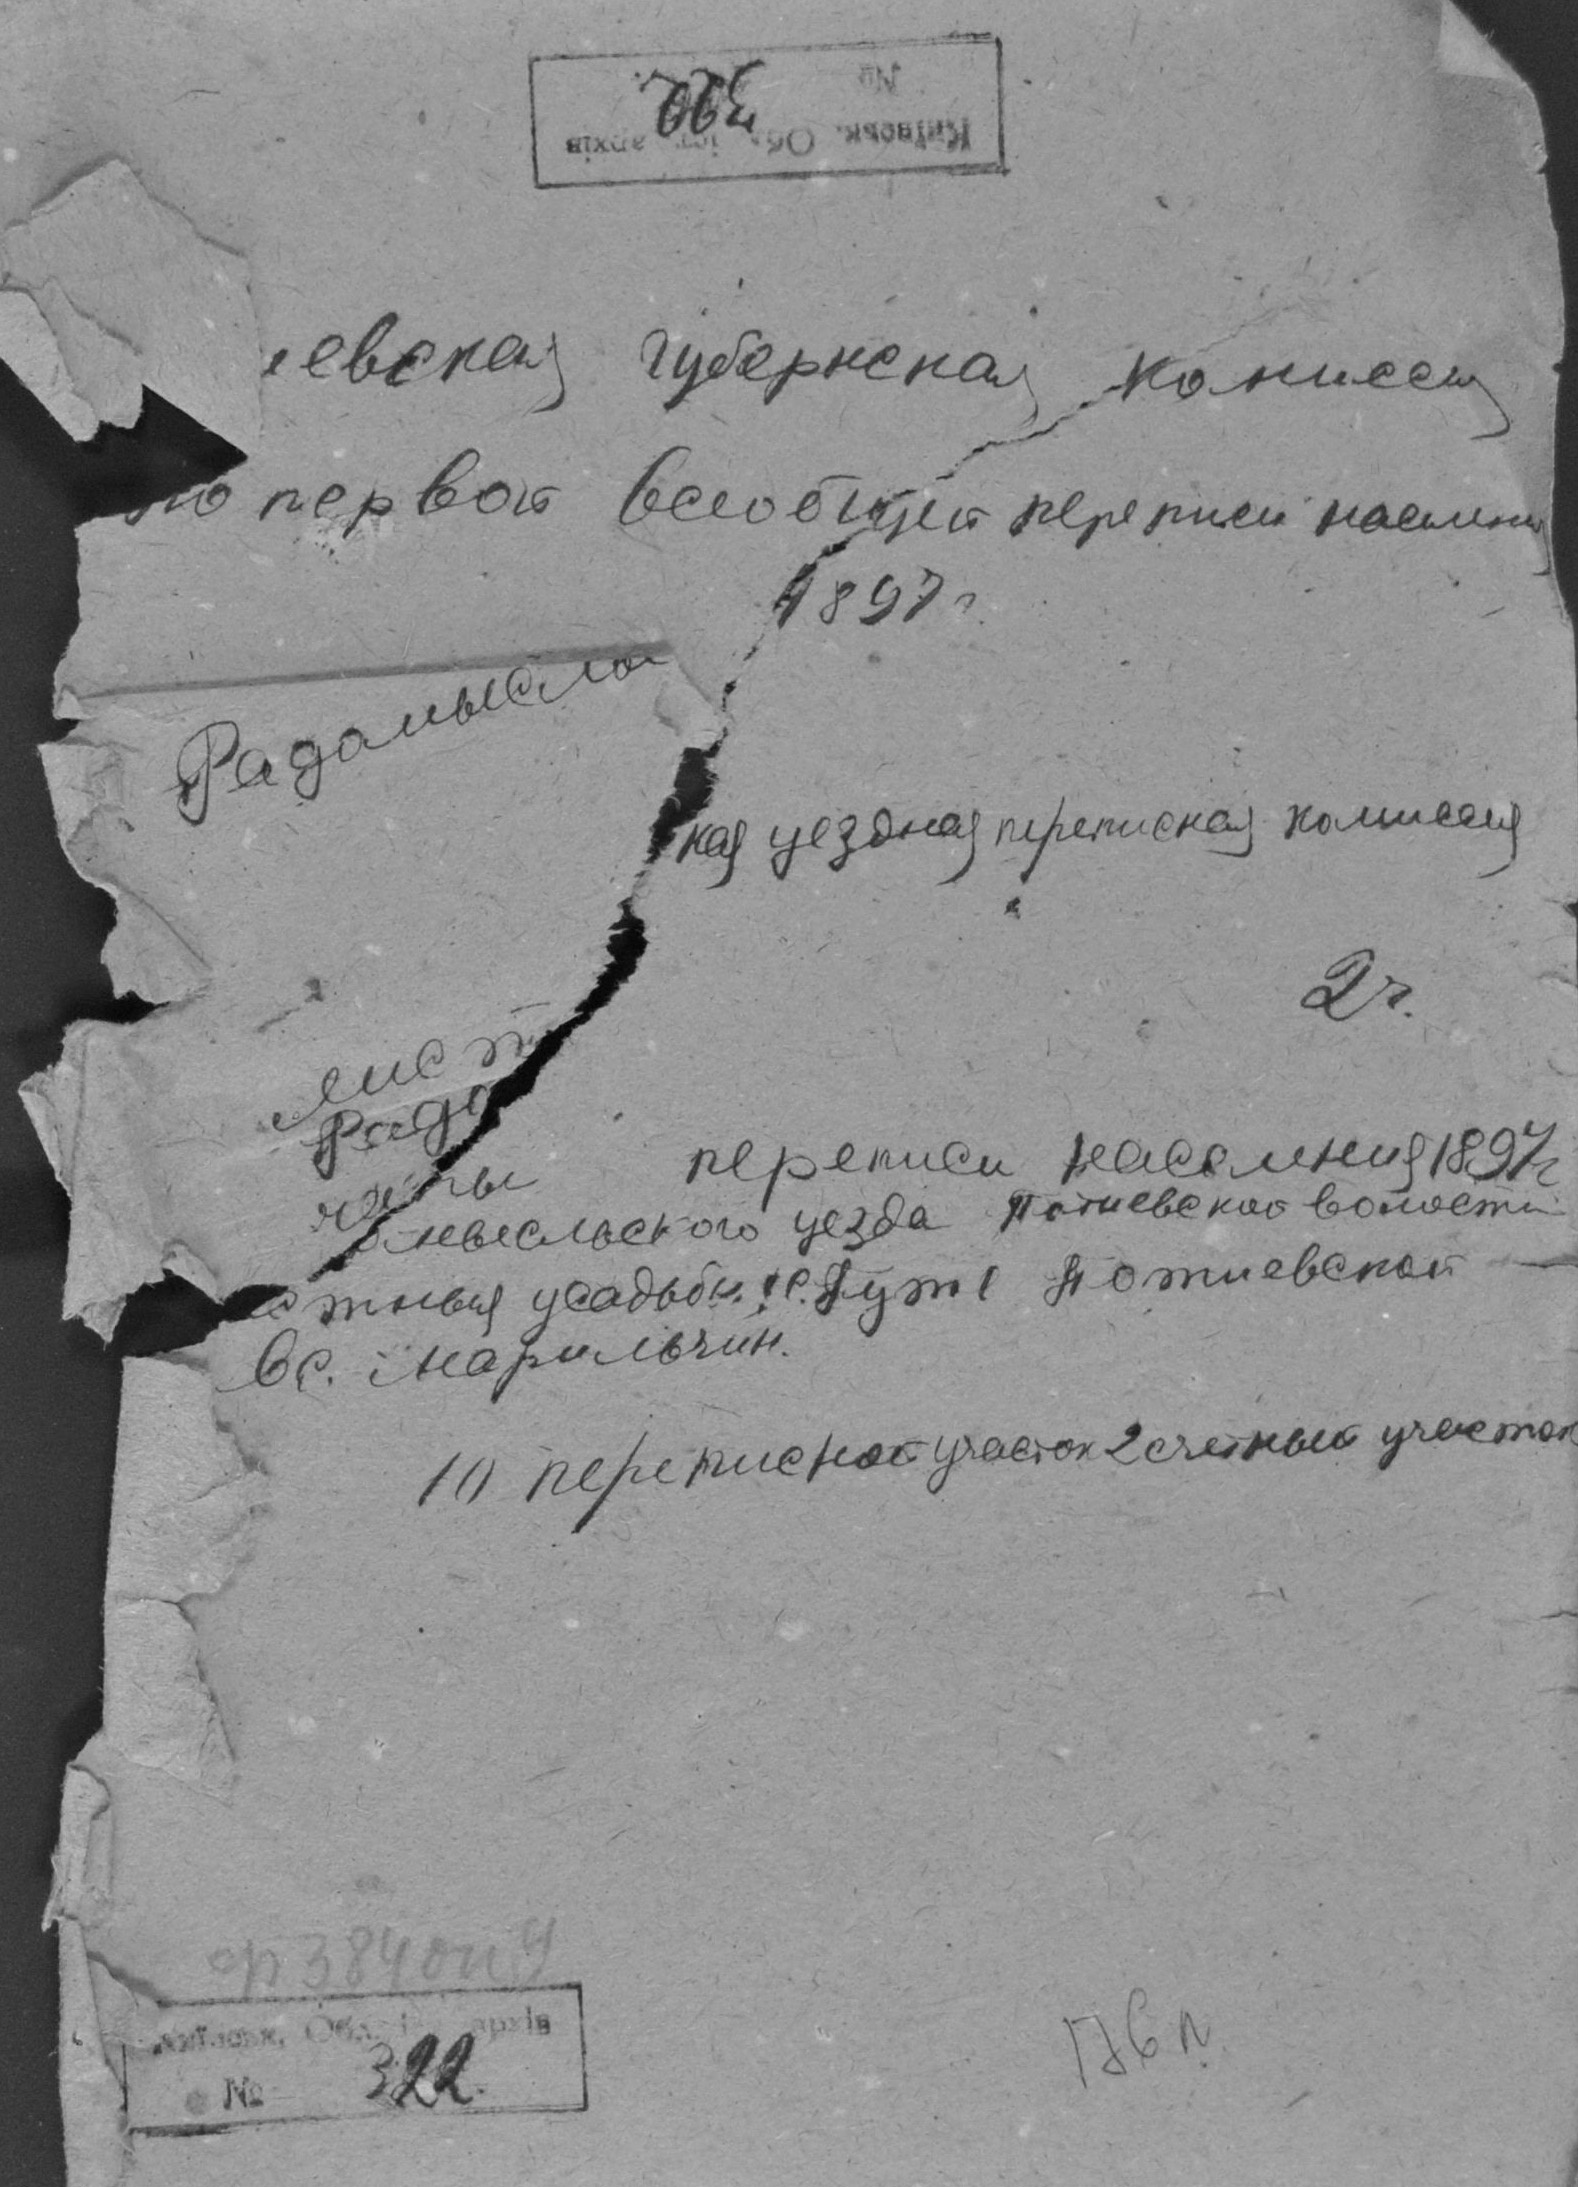 Київськ. Обл. іст. архів
№ 322.
иевская губернская комиссия
по первой всеобщей переписи населения
1897 г.
Радомысльс
кая уездная переписная комиссия
2 ч.
Лист
Радо
переписи населения 1897 г
мысльского уезда Потиевской волости
усадьбы Потиевской
в с. Марильчин.
10 переписной участок 2 счетный участок
ф 384 оп 9
Київськ. Обл. архів
№ 322.
176 л